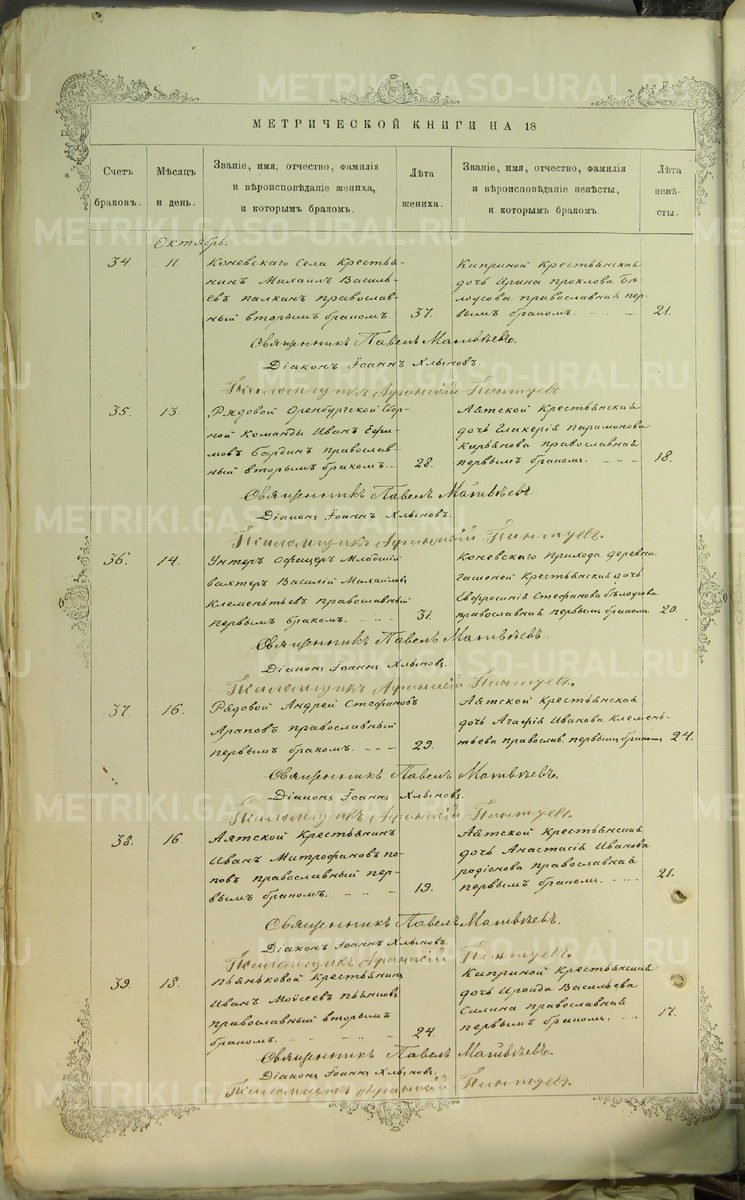 МЕТРИЧЕСКОЙ КНИГИ НА 18
Счетъ браковъ.
Мѣсяцъ и день.
Званіе, имя, отчество, фамилія
и вѣроисповѣданіе жениха,
и которымъ бракомъ.
Лѣта жениха.
Званіе, имя, отчество, фамилія
и вѣроисповѣданіе невѣсты,
и которымъ бракомъ
Лѣта невѣсты.
Октябрь.
34.
11.
Коневскаго Села Крестья-
нинъ Михаилъ Василь-
евъ палкинъ православ-
ный вторымъ бракомъ.
37.
Киприной Крестьянская
дочь Ирина проклова Бѣ-
лоусова православная пер-
вымъ бракомъ.
21.
Священникъ Павелъ Матвѣевъ.
Діаконъ Іоаннъ Хлыновъ.
35.
13.
Рядовой Оренбургской Сбор-
ной Команды Иванъ Ефи-
мовъ Бардинъ православ-
ный вторымъ бракомъ.
28.
Аятской Крестьянская
дочь Гликерія Парамонова
Кирьянова православная
первымъ бракомъ.
18.
Священникъ Павелъ Матвѣевъ.
Діаконъ Іоаннъ Хлыновъ.
36.
14.
Унтеръ Офицеръ Младшій
вахтеръ Василій Михайловъ
Клементьевъ православный
первымъ бракомъ.
31.
Коневскаго прихода деревни
Гашеной Крестьянская дочь
Евфросинія Стефанова Бѣлоусова
православная первымъ бракомъ.
20.
Священникъ Павелъ Матвѣевъ.
Діаконъ Іоаннъ Хлыновъ.
37.
16.
Рядовой Андрей Стефановъ
Араповъ православный
первымъ бракомъ.
29.
Аятской Крестьянская
дочь Агафія Иванова Клемень-
тьева православ. первымъ бракомъ
24.
Священникъ Павелъ Матвѣевъ.
Діаконъ Іоаннъ Хлыновъ.
38.
16
Аятской Крестьянинъ
Иванъ Митрофановъ по-
повъ православный пер-
вымъ бракомъ.
19.
Аятской Крестьянская
дочь Анастасія Иванова
родіонова православная
первымъ бракомъ.
21.
Священникъ Павелъ Матвѣевъ.
Діаконъ Іоаннъ Хлыновъ.
39.
18.
пьяньковой Крестьянинъ
Иванъ Моѵсеевъ пьянковъ
православный вторымъ
бракомъ.
24.
Киприной Крестьянская
дочь Ироида Васильева
Силина православная
первымъ бракомъ.
17.
Священникъ Павелъ Матвѣевъ.
Діаконъ Іоаннъ Хлыновъ.
METRIKI.GASO-URAL.RU